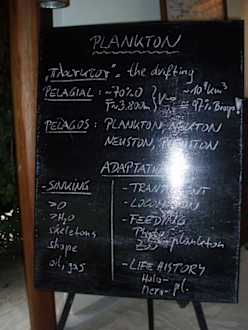 PLANKTON
"πλανκτον" = the drifting
PELAGIAL: ~70% O
T~3.800m
~10⁹ km³
≅ 97%
PELAGOS: PLANKTON, NEKTON
NEUSTON, PLEUSTON
ADAPTATIONS
- SINKING
>O
>H₂O
skeletons
shape
oil, gas
- TRANSPARENT
- LOCOMOTION
- FEEDING
Phyto-
Zoo- plankton
- LIFE HISTORY
Holo-
Mero- pl.